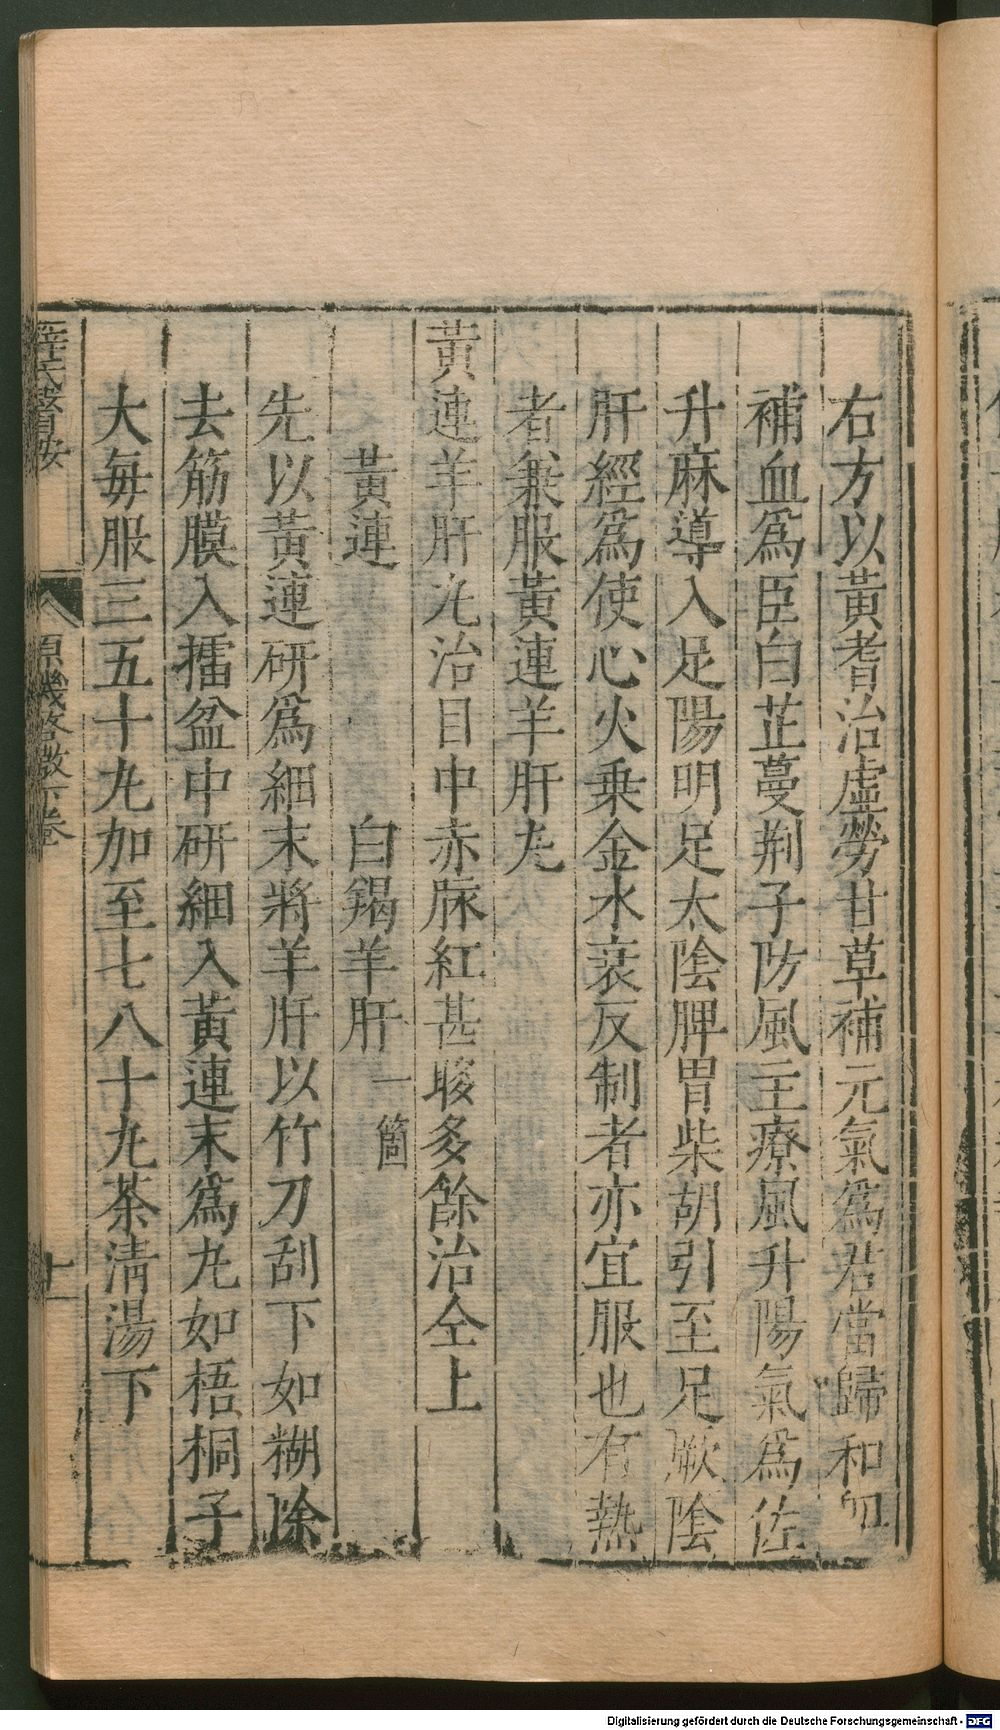 右方以黃耆治虛勞甘草補元氣爲君當歸和血
補血爲臣白芷蔓荆子防風主療風升陽氣爲佐
升麻導入足陽明足太陰脾胃柴胡引至足厥陰
肝經爲使心火乗金水衰反制者亦宜服也有熱
者兼服黃連羊肝丸
黃連羊肝丸治目中赤脉紅甚眵多餘治仝上
黃連 白羯羊肝一箇
先以黃連研爲細末將羊肝以竹刀刮下如糊除
去筋膜入擂盆中研細入黃連末爲丸如梧桐子
大每服三五十丸加至七八十丸茶淸湯下
薛氏醫按 原機啓微下卷 十一
Digitalisierung gefördert durch die Deutsche Forschungsgemeinschaft - DFG